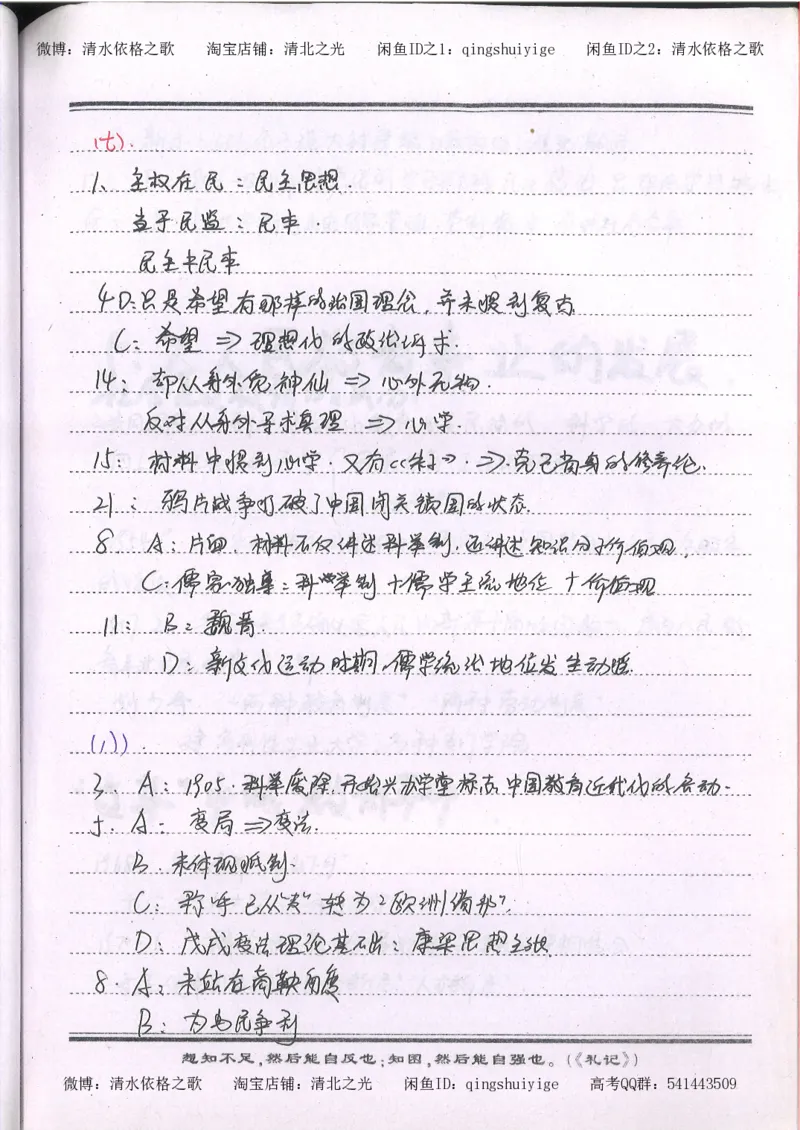 微博：清水依格之歌 淘宝店铺：清北之光 闲鱼ID之1：qingshuiyige 闲鱼ID之2：清水依格之歌
(七).
1、主权在民：民主思想.
当于民监：民本.
民主≠民本
4 D:只是希望有那样的治国理念,并未提到复古
C: 希望 ⇒ 理想化的政治诉求.
14: 却从身外觅神仙 ⇒ 心外无物.
反对从身外寻求真理 ⇒ 心学.
15: 材料中提到心学.又有《朱》.⇒.克己省身的修养论.
21: 鸦片战争打破了中国闭关锁国的状态.
8 A: 片面、材料不仅讲述科举制,还讲述知识分子价值观,
C: 儒家独尊：科举制+儒学主流地位+价值观
11: B: 魏晋.
D: 新文化运动时期,儒学统治地位发生动摇.
(八).
3. A: 1905.科举废除,开始兴办学堂标志中国教育近代化的启动.
5. A: 变局⇒变法.
B. 未体现抵制.
C: 称呼已从"夷"转为"欧洲诸邦".
D: 戊戌变法理论基础：康梁思想主张.
8. A: 未站在商鞅角度
B: 为与民争利
想知不足，然后能自反也；知困，然后能自强也。(《礼记》)
微博：清水依格之歌 淘宝店铺：清北之光 闲鱼ID：qingshuiyige 高考QQ群：541443509